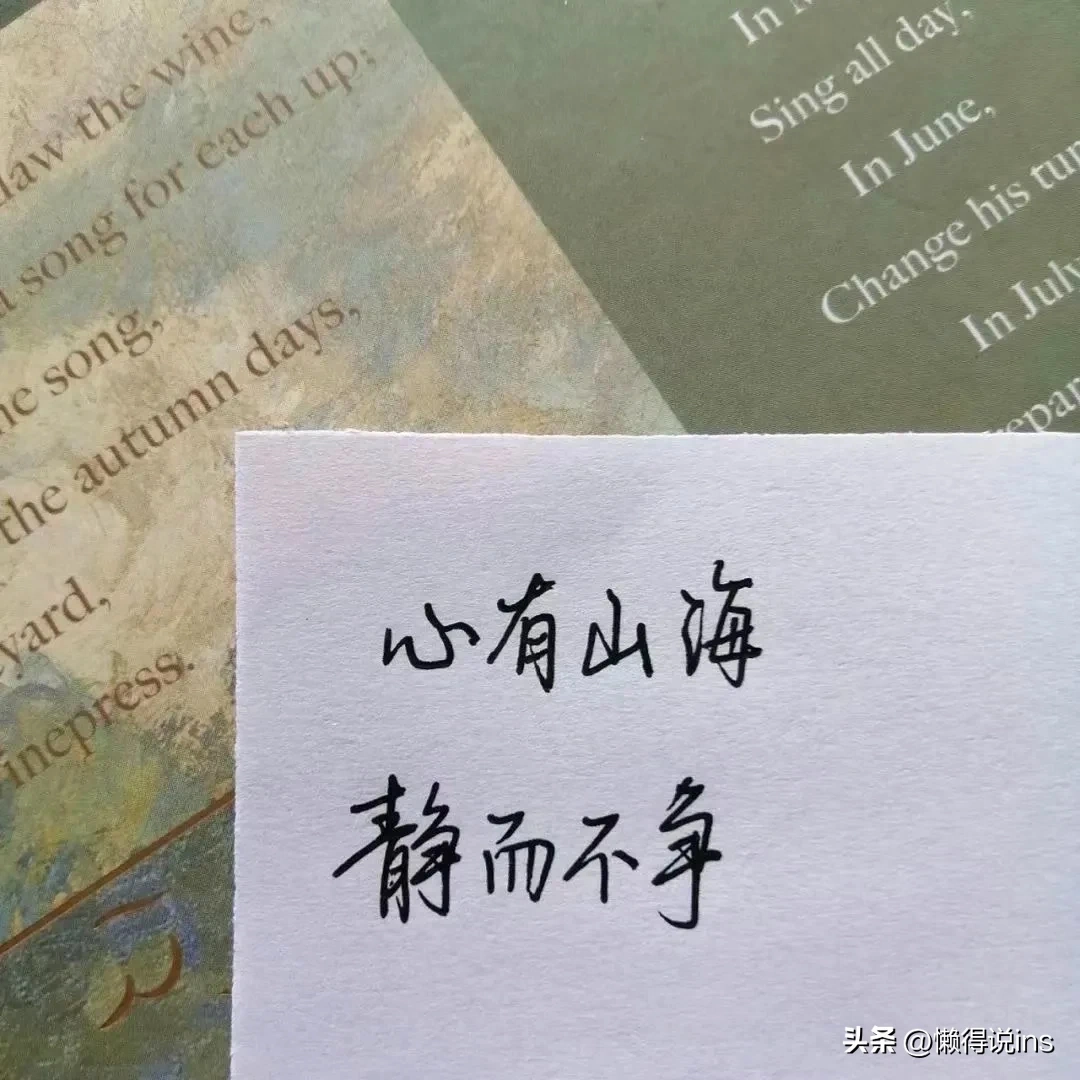 law the wine,
song for each up;
song,
the autumn days,
yard,
inepress.
In
Sing all day,
In June,
Change his
In July
心有山海
静而不争
头条 @懒得说ins